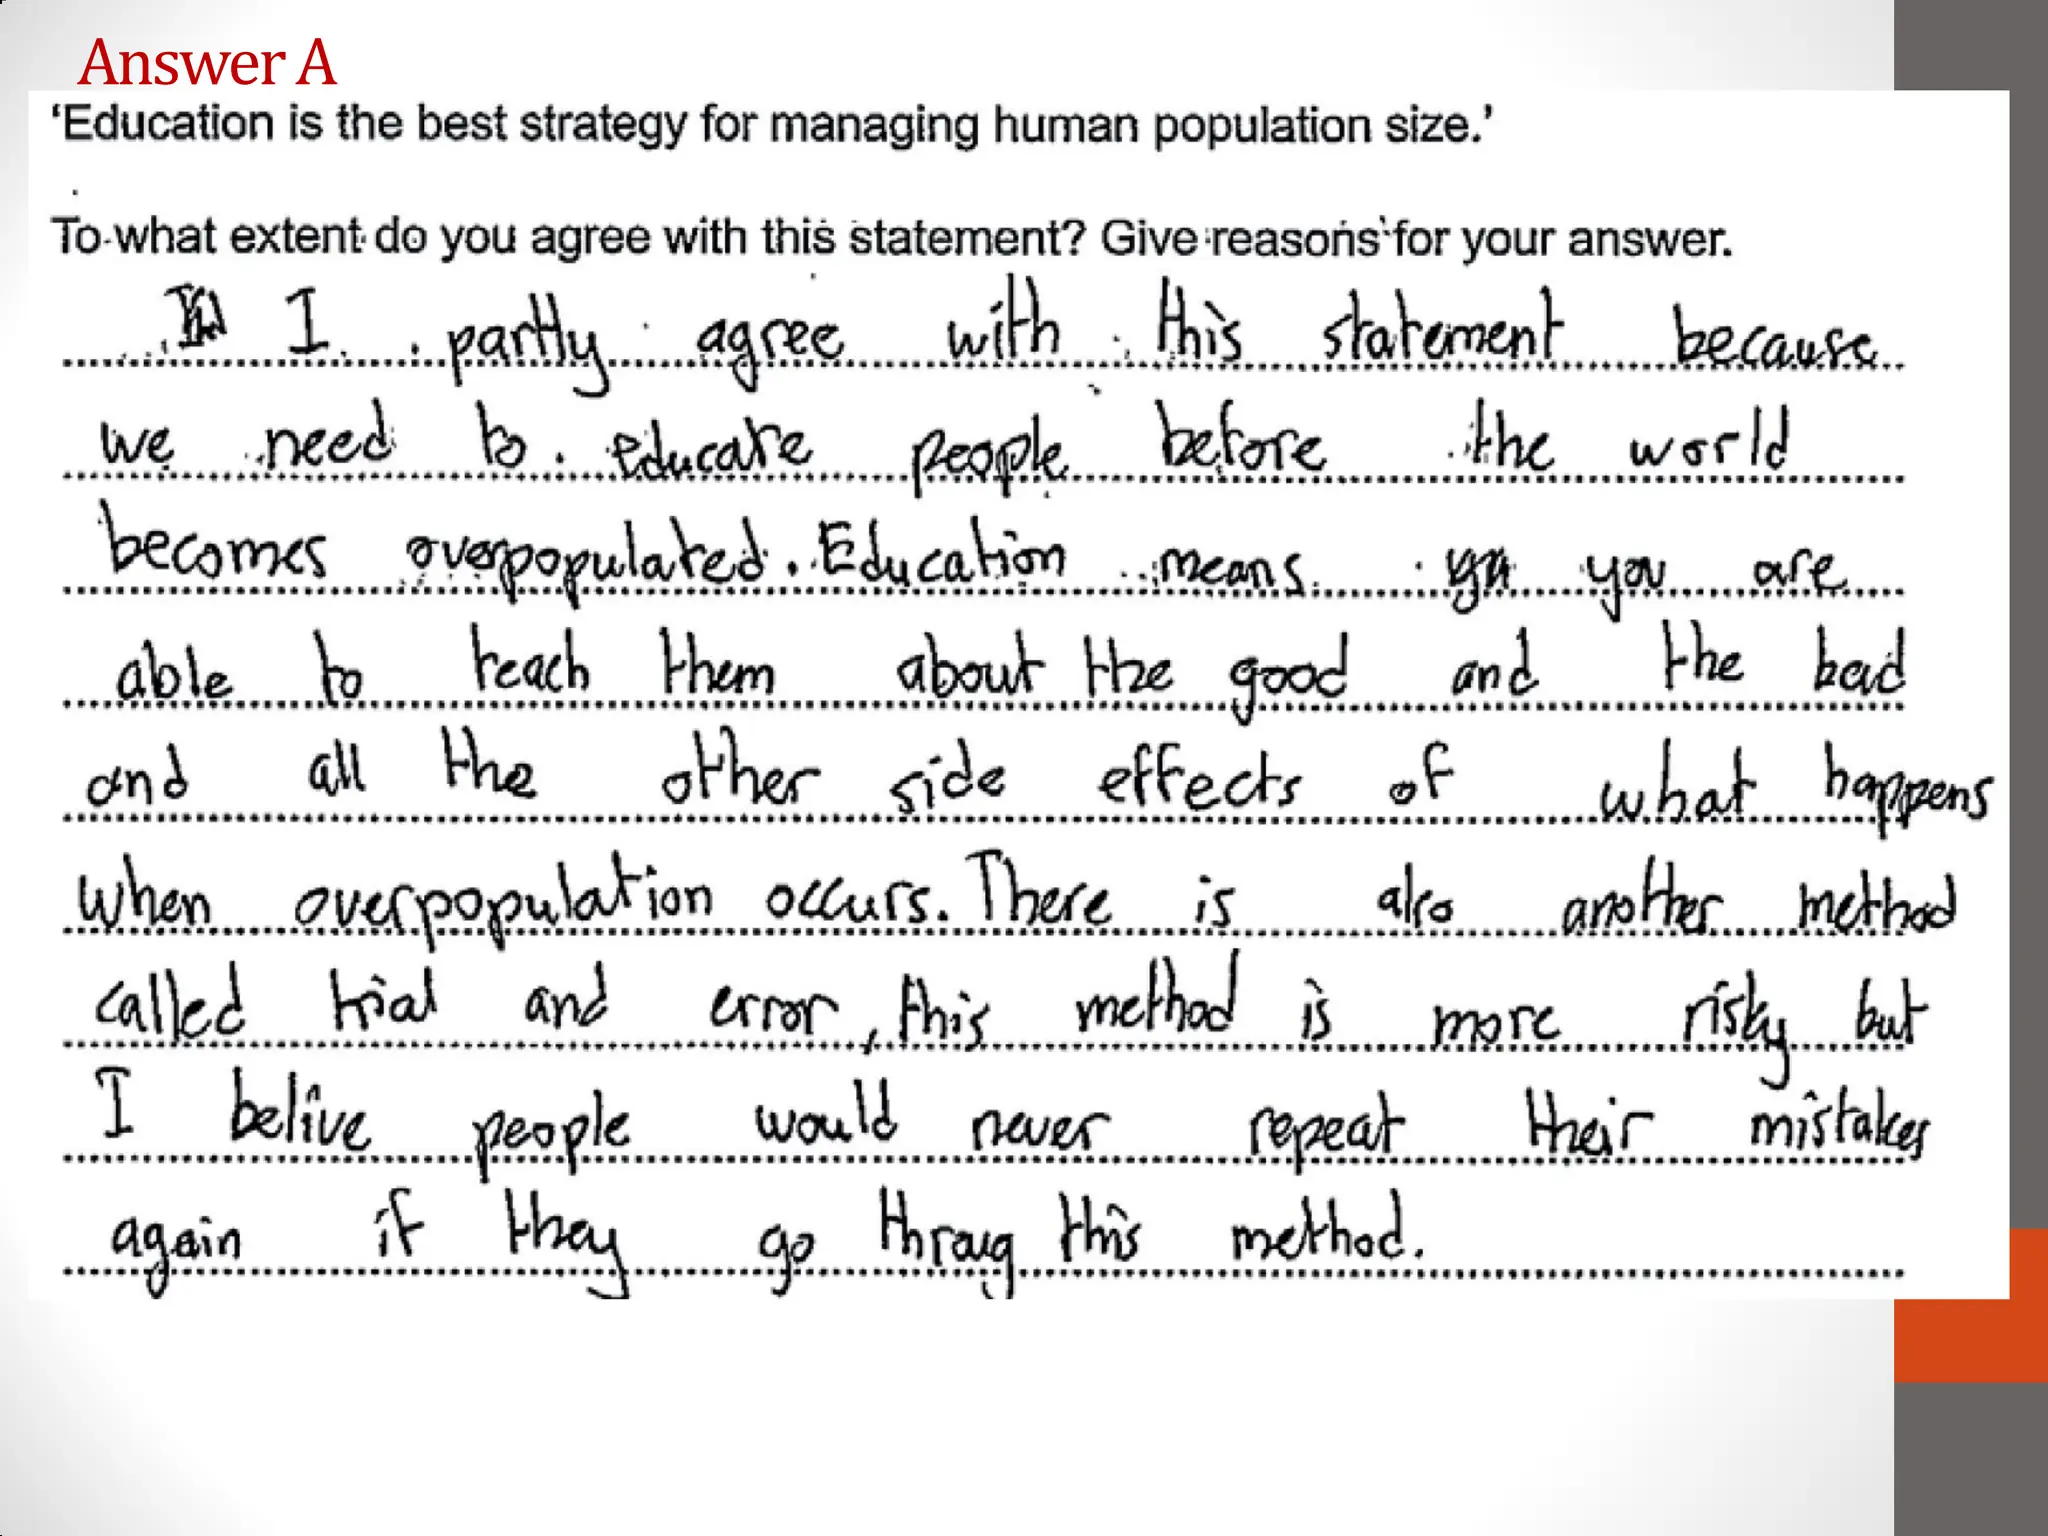 Answer A
‘Education is the best strategy for managing human population size.’
To what extent do you agree with this statement? Give reasons for your answer.
I partly agree with this statement because
we need to educate people before the world
becomes overpopulated. Education means you are
able to teach them about the good and the bad
and all the other side effects of what happens
when overpopulation occurs. There is also another method
called trial and error, this method is more risky but
I belive people would never repeat their mistakes
again if they go throug this method.